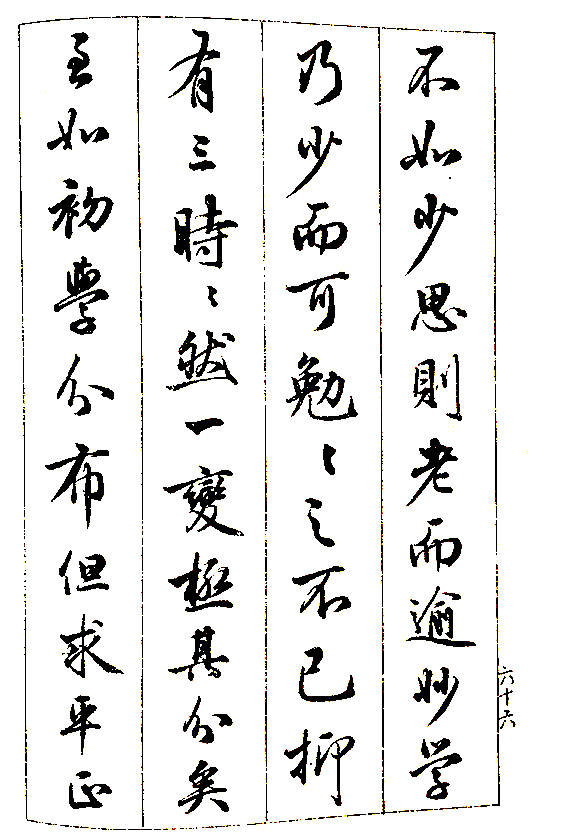 不如少思則老而逾妙学
乃少而可勉〻之不已抑
有三時〻然一變極其分矣
至如初學分布但求平正
六十六